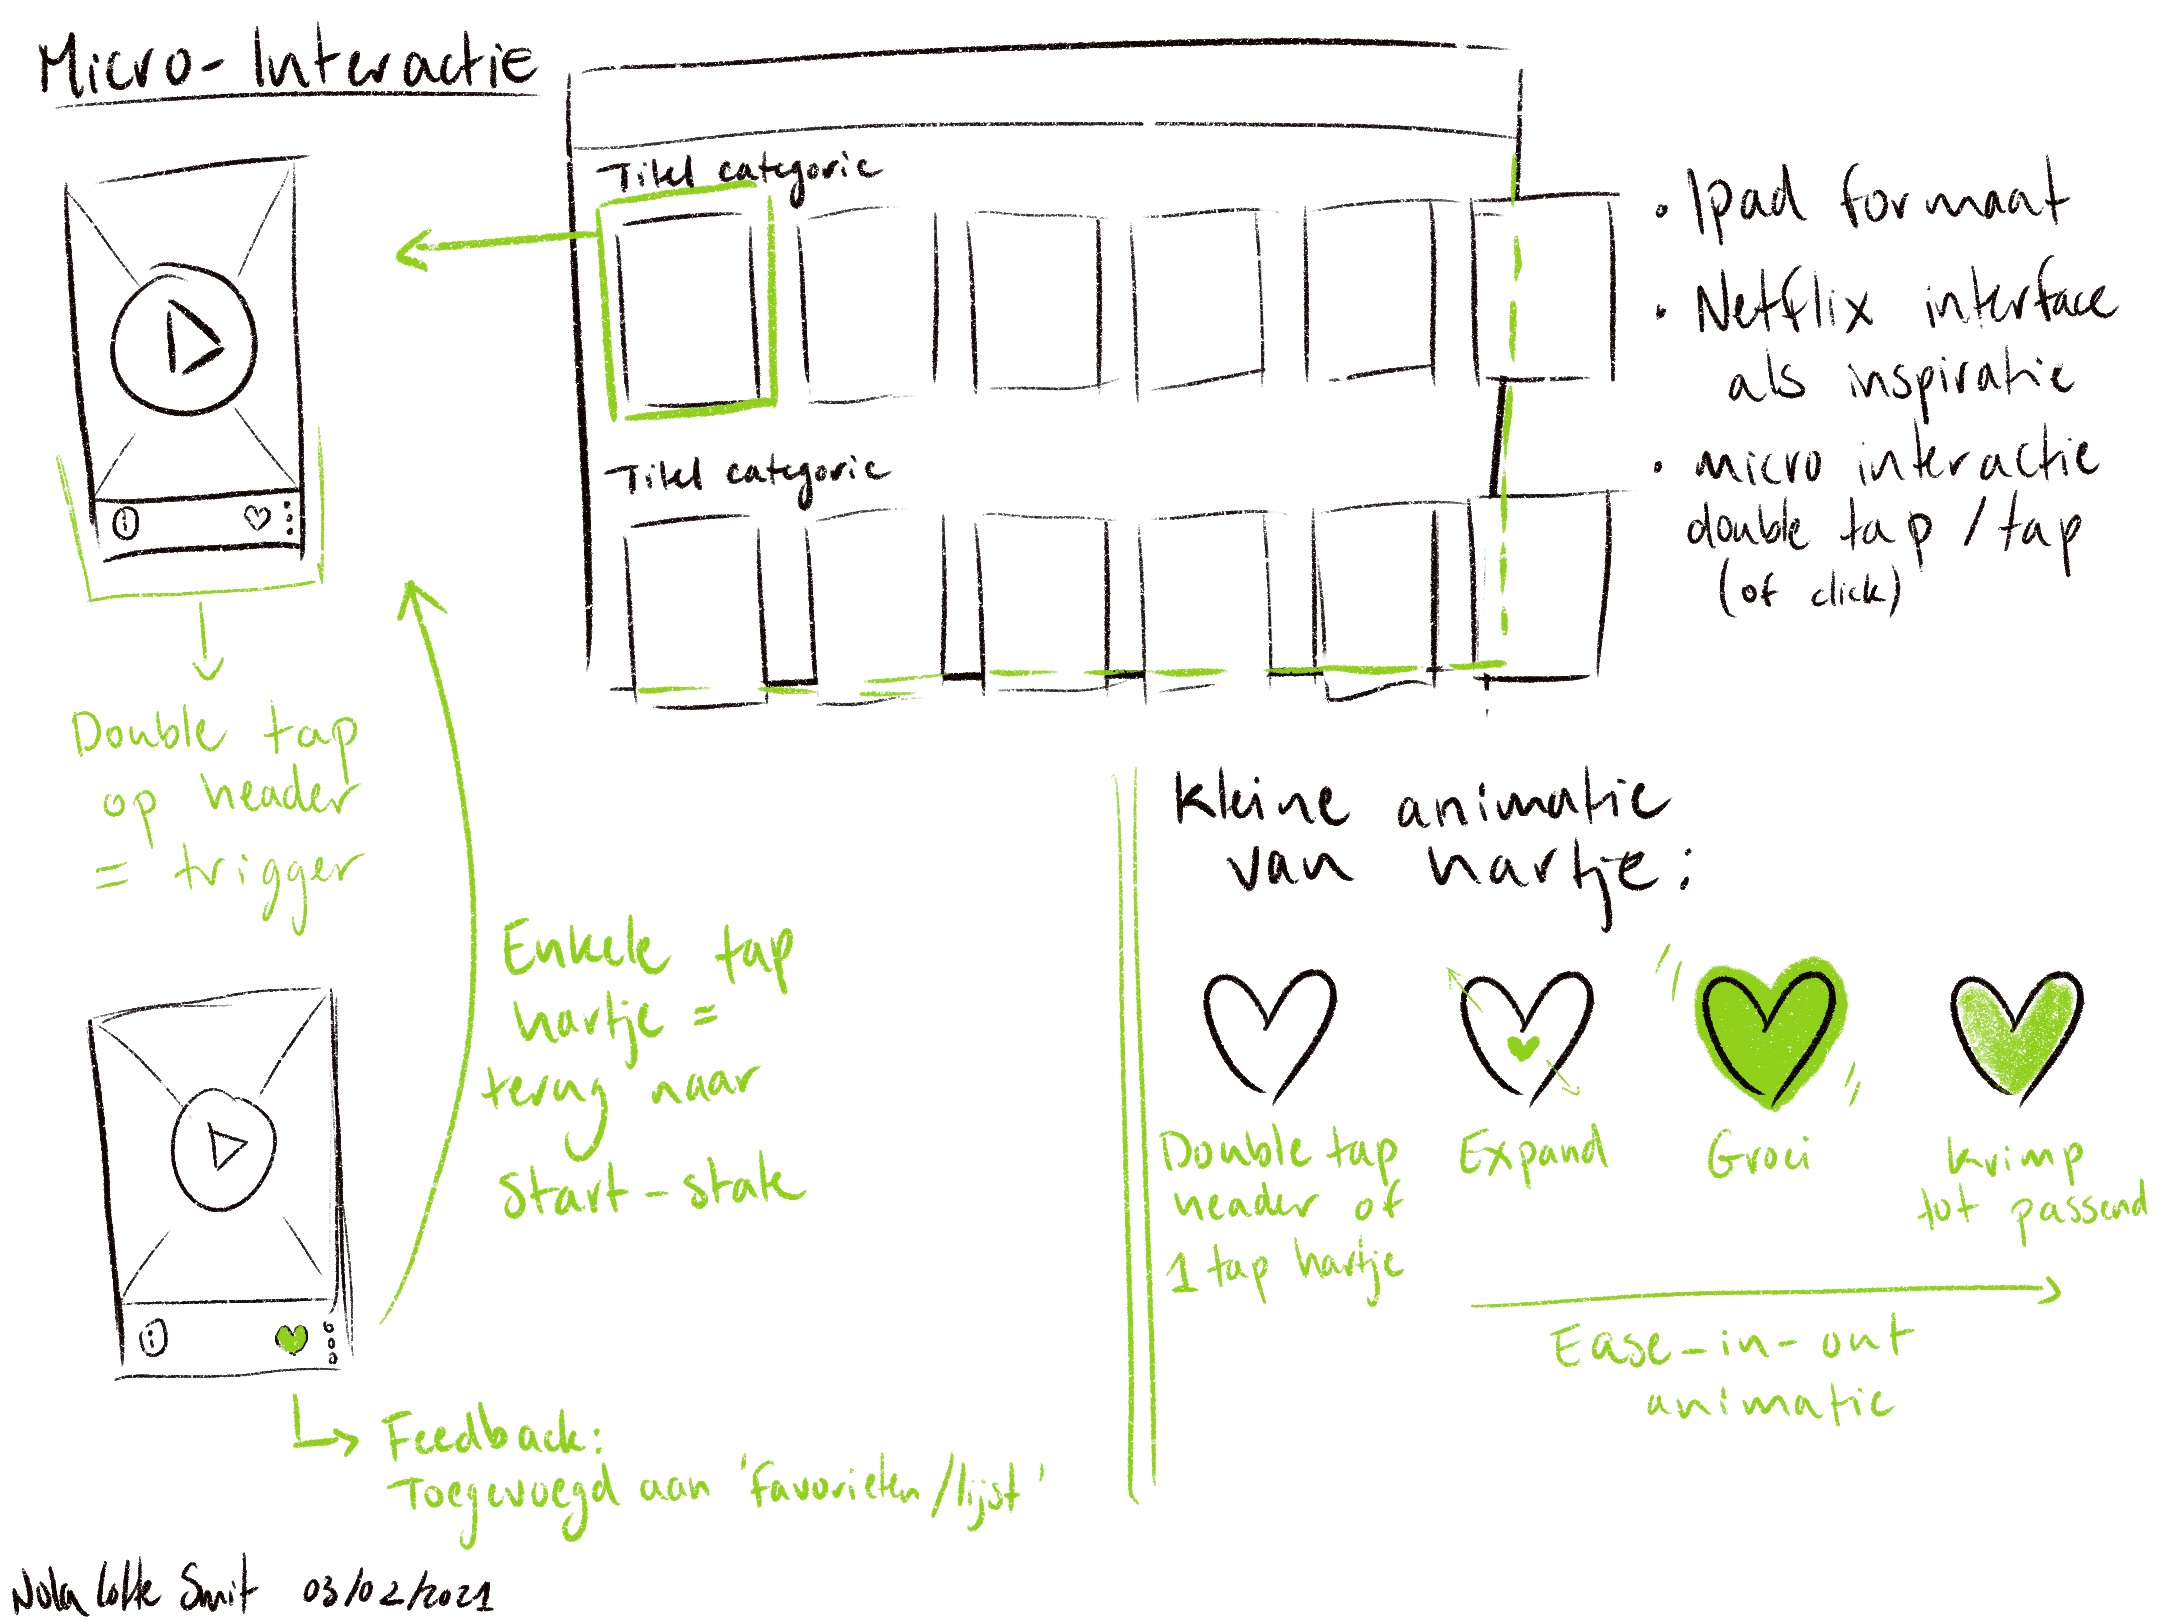 Micro-Interactie
Titel categorie
Titel categorie
• Ipad formaat
• Netflix interface
als inspiratie
• micro interactie
double tap / tap
(of click)
Double tap
op header
= trigger
Enkele tap
hartje =
terug naar
Start-state
Feedback:
Toegevoegd aan 'favorieten/lijst'
Kleine animatie
van hartje:
Double tap
header of
1 tap hartje
Expand
Groei
Krimp
tot passend
Ease-in-out
animatie
Nola Lotte Smit 03/02/2021